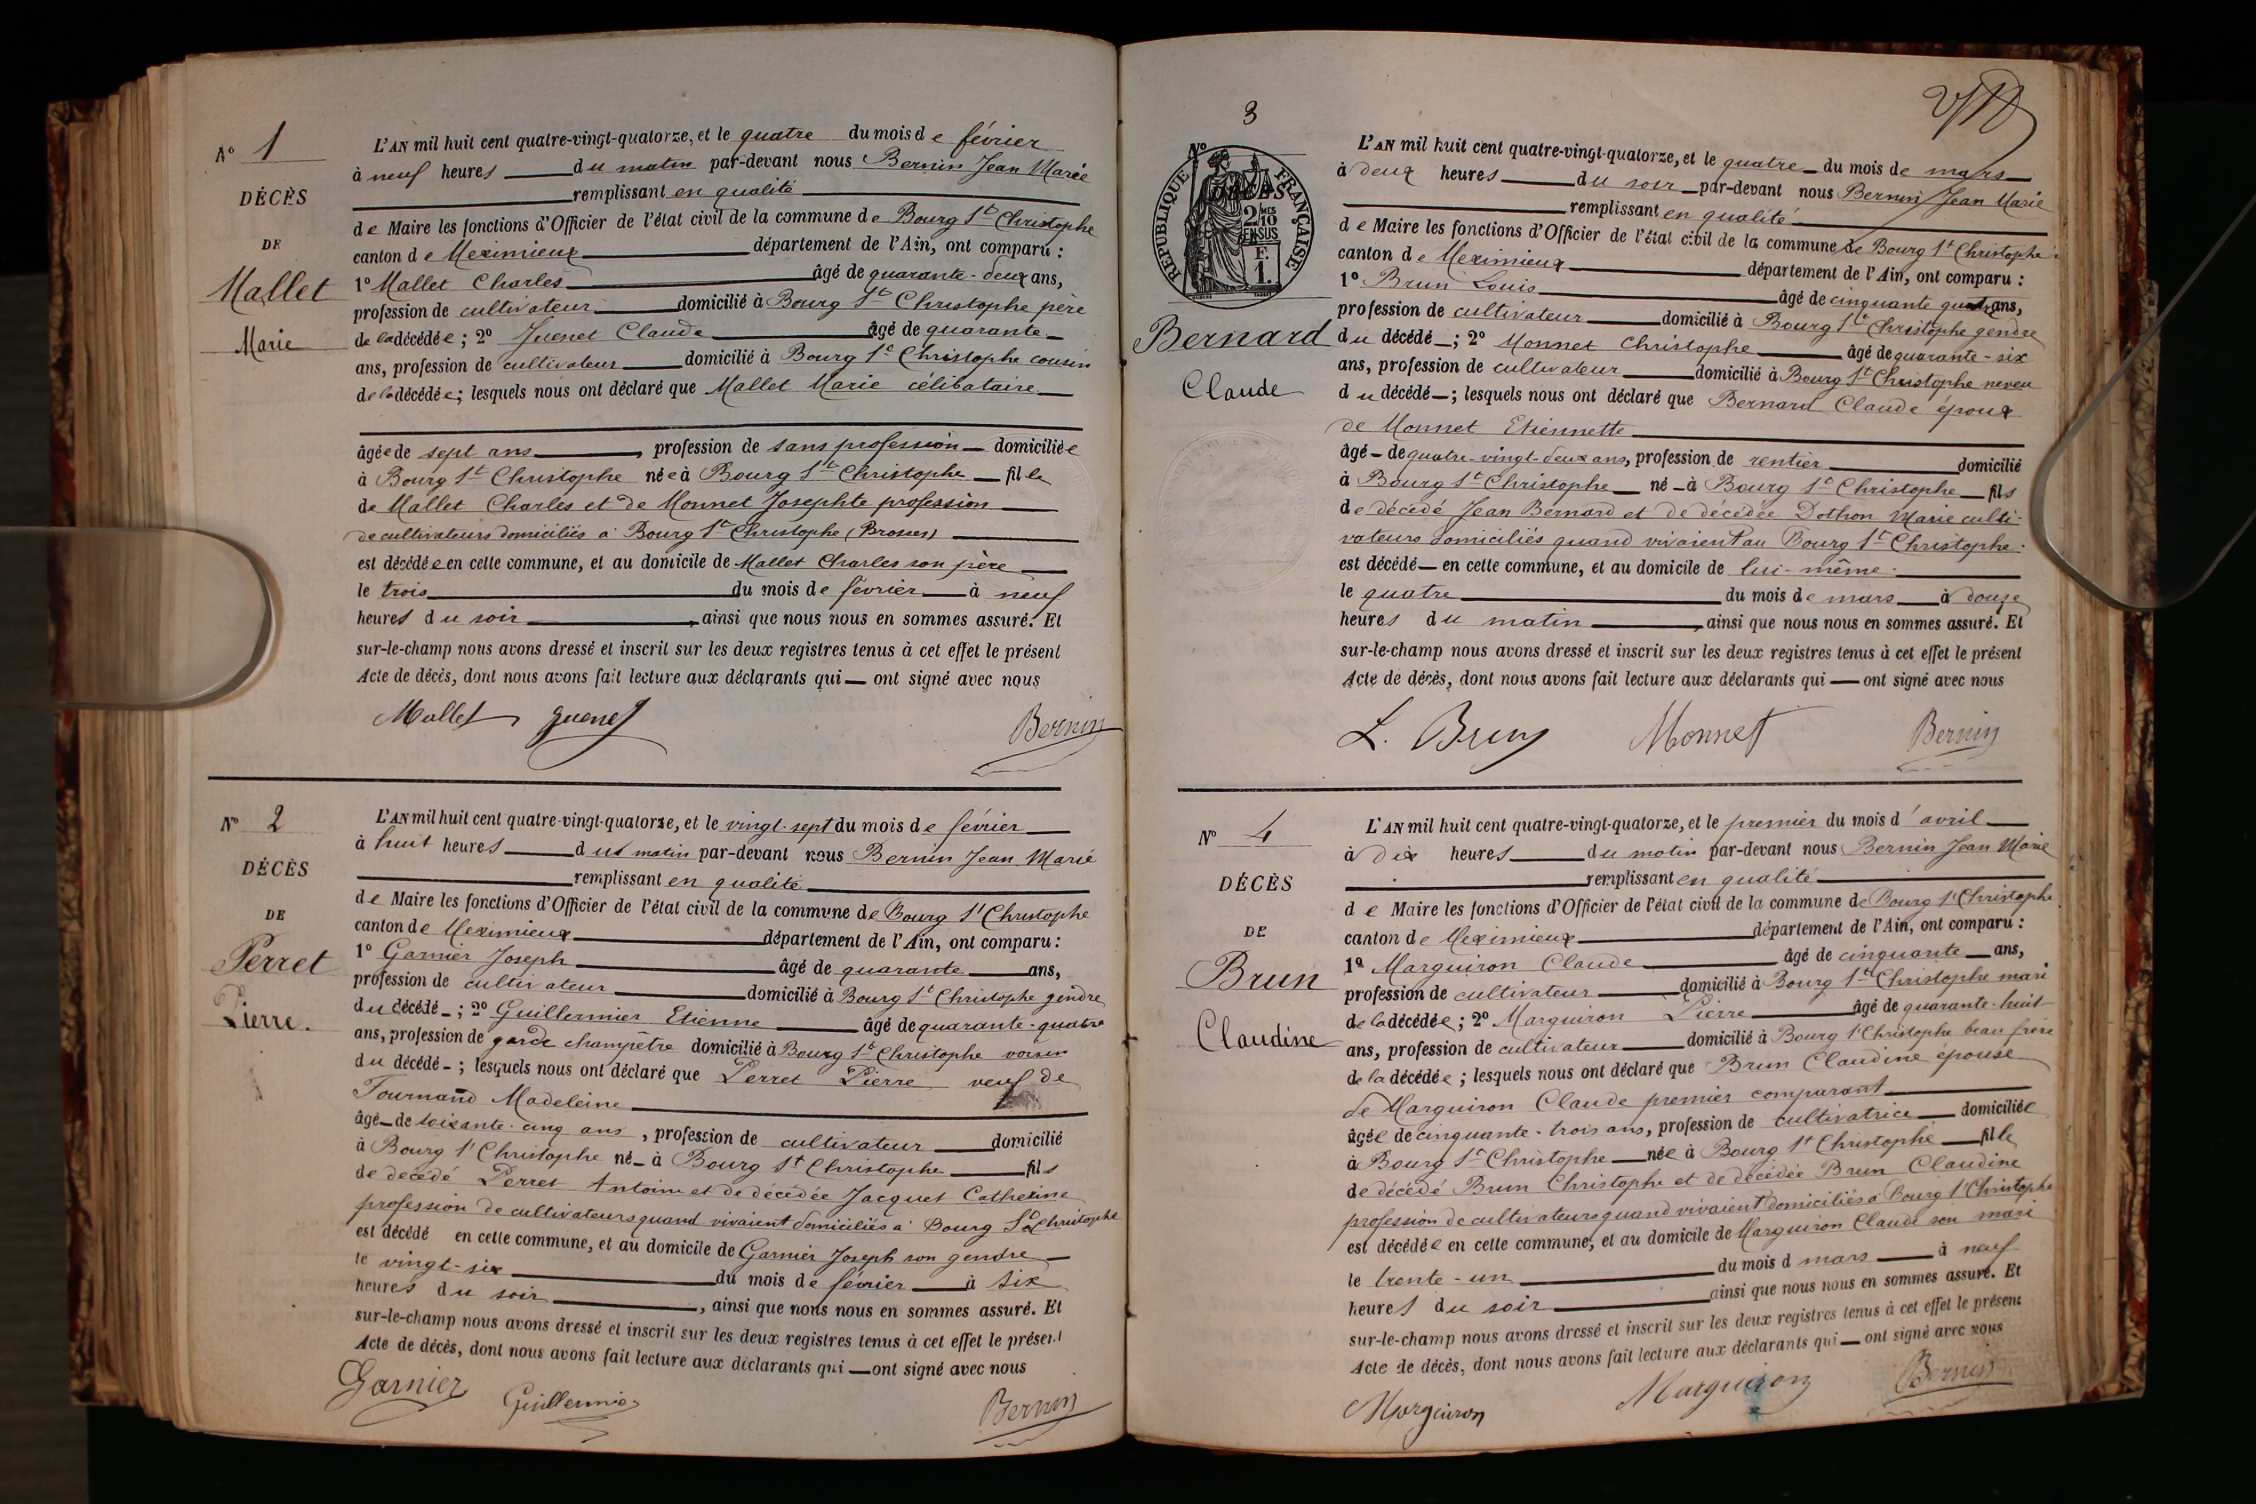 Nº 1
DÉCÈS
DE
Mallet
Marie
L'AN mil huit cent quatre-vingt-quatorze, et le quatre du mois de février
à neuf heures du matin par-devant nous Bernin Jean Marie
remplissant en qualité
de Maire les fonctions d'Officier de l'état civil de la commune de Bourg St Christophe
canton de Meximieux département de l'Ain, ont comparu :
1º Mallet Charles âgé de quarante-deux ans,
profession de cultivateur domicilié à Bourg St Christophe père
de la décédée ; 2º Juenet Claude âgé de quarante
ans, profession de cultivateur domicilié à Bourg St Christophe cousin
de la décédée ; lesquels nous ont déclaré que Mallet Marie célibataire
âgée de sept ans, profession de sans profession domiciliée
à Bourg St Christophe née à Bourg St Christophe fille
de Mallet Charles et de Monnet Josephte profession
de cultivateurs domiciliés à Bourg St Christophe (Brosses)
est décédée en cette commune, et au domicile de Mallet Charles son père
le trois du mois de février à neuf
heures du soir, ainsi que nous nous en sommes assuré. Et
sur-le-champ nous avons dressé et inscrit sur les deux registres tenus à cet effet le présent
Acte de décès, dont nous avons fait lecture aux déclarants qui ont signé avec nous
Mallet Juenet Bernin
Nº 2
DÉCÈS
DE
Perret
Pierre.
L'AN mil huit cent quatre-vingt-quatorze, et le vingt-sept du mois de février
à huit heures du matin par-devant nous Bernin Jean Marie
remplissant en qualité
de Maire les fonctions d'Officier de l'état civil de la commune de Bourg St Christophe
canton de Meximieux département de l'Ain, ont comparu :
1º Garnier Joseph âgé de quarante ans,
profession de cultivateur domicilié à Bourg St Christophe gendre
du décédé ; 2º Guillermier Etienne âgé de quarante-quatre
ans, profession de garde champêtre domicilié à Bourg St Christophe voisin
du décédé ; lesquels nous ont déclaré que Perret Pierre veuf de
Tournand Madeleine
âgé de soixante-cinq ans, profession de cultivateur domicilié
à Bourg St Christophe né à Bourg St Christophe fils
de décédé Perret Antoine et de décédée Jacquet Catherine
profession de cultivateurs quand vivaient domiciliés à Bourg St Christophe
est décédé en cette commune, et au domicile de Garnier Joseph son gendre
le vingt-six du mois de février à six
heures du soir, ainsi que nous nous en sommes assuré. Et
sur-le-champ nous avons dressé et inscrit sur les deux registres tenus à cet effet le présent
Acte de décès, dont nous avons fait lecture aux déclarants qui ont signé avec nous
Garnier Guillermier Bernin
3
Nº
RÉPUBLIQUE FRANÇAISE
2/10
EN SUS
F.
1.
DÉCÈS
Bernard
Claude
L'AN mil huit cent quatre-vingt-quatorze, et le quatre du mois de mars
à deux heures du soir par-devant nous Bernin Jean Marie
remplissant en qualité
de Maire les fonctions d'Officier de l'état civil de la commune de Bourg St Christophe
canton de Meximieux département de l'Ain, ont comparu :
1º Brun Louis âgé de cinquante quatre ans,
profession de cultivateur domicilié à Bourg St Christophe gendre
du décédé ; 2º Monnet Christophe âgé de quarante-six
ans, profession de cultivateur domicilié à Bourg St Christophe neveu
du décédé ; lesquels nous ont déclaré que Bernard Claude époux
de Monnet Etiennette
âgé de quatre-vingt-deux ans, profession de rentier domicilié
à Bourg St Christophe né à Bourg St Christophe fils
de décédé Jean Bernard et de décédée Dothon Marie culti-
vateurs domiciliés quand vivaient au Bourg St Christophe.
est décédé en cette commune, et au domicile de lui-même.
le quatre du mois de mars à douze
heures du matin, ainsi que nous nous en sommes assuré. Et
sur-le-champ nous avons dressé et inscrit sur les deux registres tenus à cet effet le présent
Acte de décès, dont nous avons fait lecture aux déclarants qui ont signé avec nous
L. Brun Monnet Bernin
Nº 4
DÉCÈS
DE
Brun
Claudine
L'AN mil huit cent quatre-vingt-quatorze, et le premier du mois d'avril
à dix heures du matin par-devant nous Bernin Jean Marie
remplissant en qualité
de Maire les fonctions d'Officier de l'état civil de la commune de Bourg St Christophe
canton de Meximieux département de l'Ain, ont comparu :
1º Marguiron Claude âgé de cinquante ans,
profession de cultivateur domicilié à Bourg St Christophe mari
de la décédée ; 2º Marguiron Pierre âgé de quarante-huit
ans, profession de cultivateur domicilié à Bourg St Christophe beau frère
de la décédée ; lesquels nous ont déclaré que Brun Claudine épouse
de Marguiron Claude premier comparant
âgée de cinquante-trois ans, profession de cultivatrice domiciliée
à Bourg St Christophe née à Bourg St Christophe fille
de décédé Brun Christophe et de décédée Brun Claudine
profession de cultivateurs quand vivaient domiciliés à Bourg St Christophe
est décédée en cette commune, et au domicile de Marguiron Claude son mari
le trente-un du mois d mars à neuf
heures du soir ainsi que nous nous en sommes assuré. Et
sur-le-champ nous avons dressé et inscrit sur les deux registres tenus à cet effet le présent
Acte de décès, dont nous avons fait lecture aux déclarants qui ont signé avec nous
Marguiron Marguiron Bernin